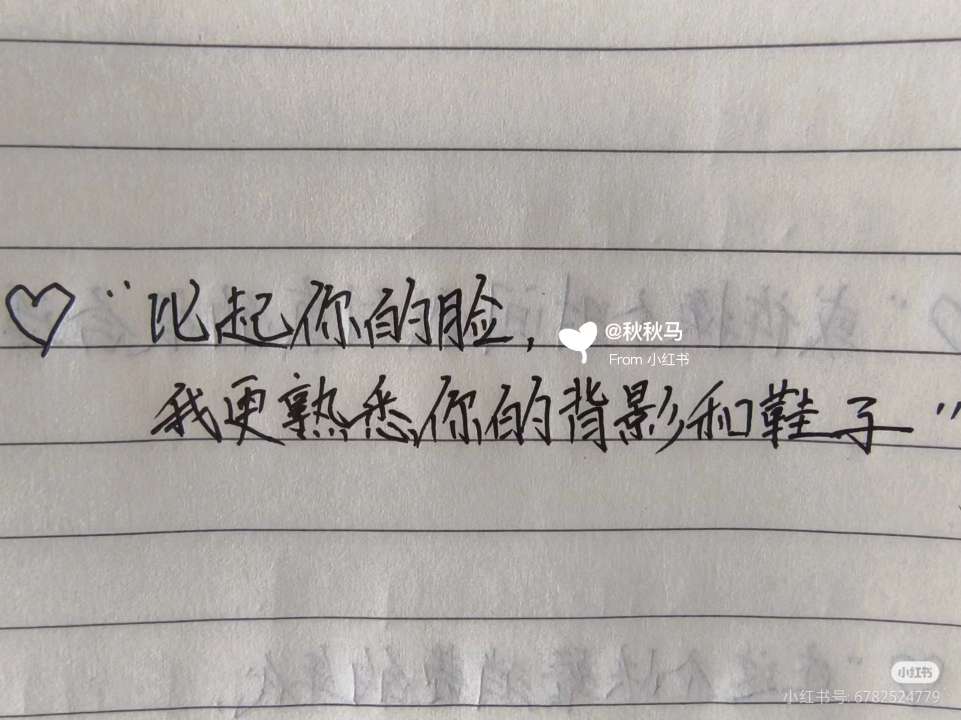 ♡“比起你的脸，
@秋秋马
From 小红书
我更熟悉你的背影和鞋子”
小红书
小红书号: 6782524779